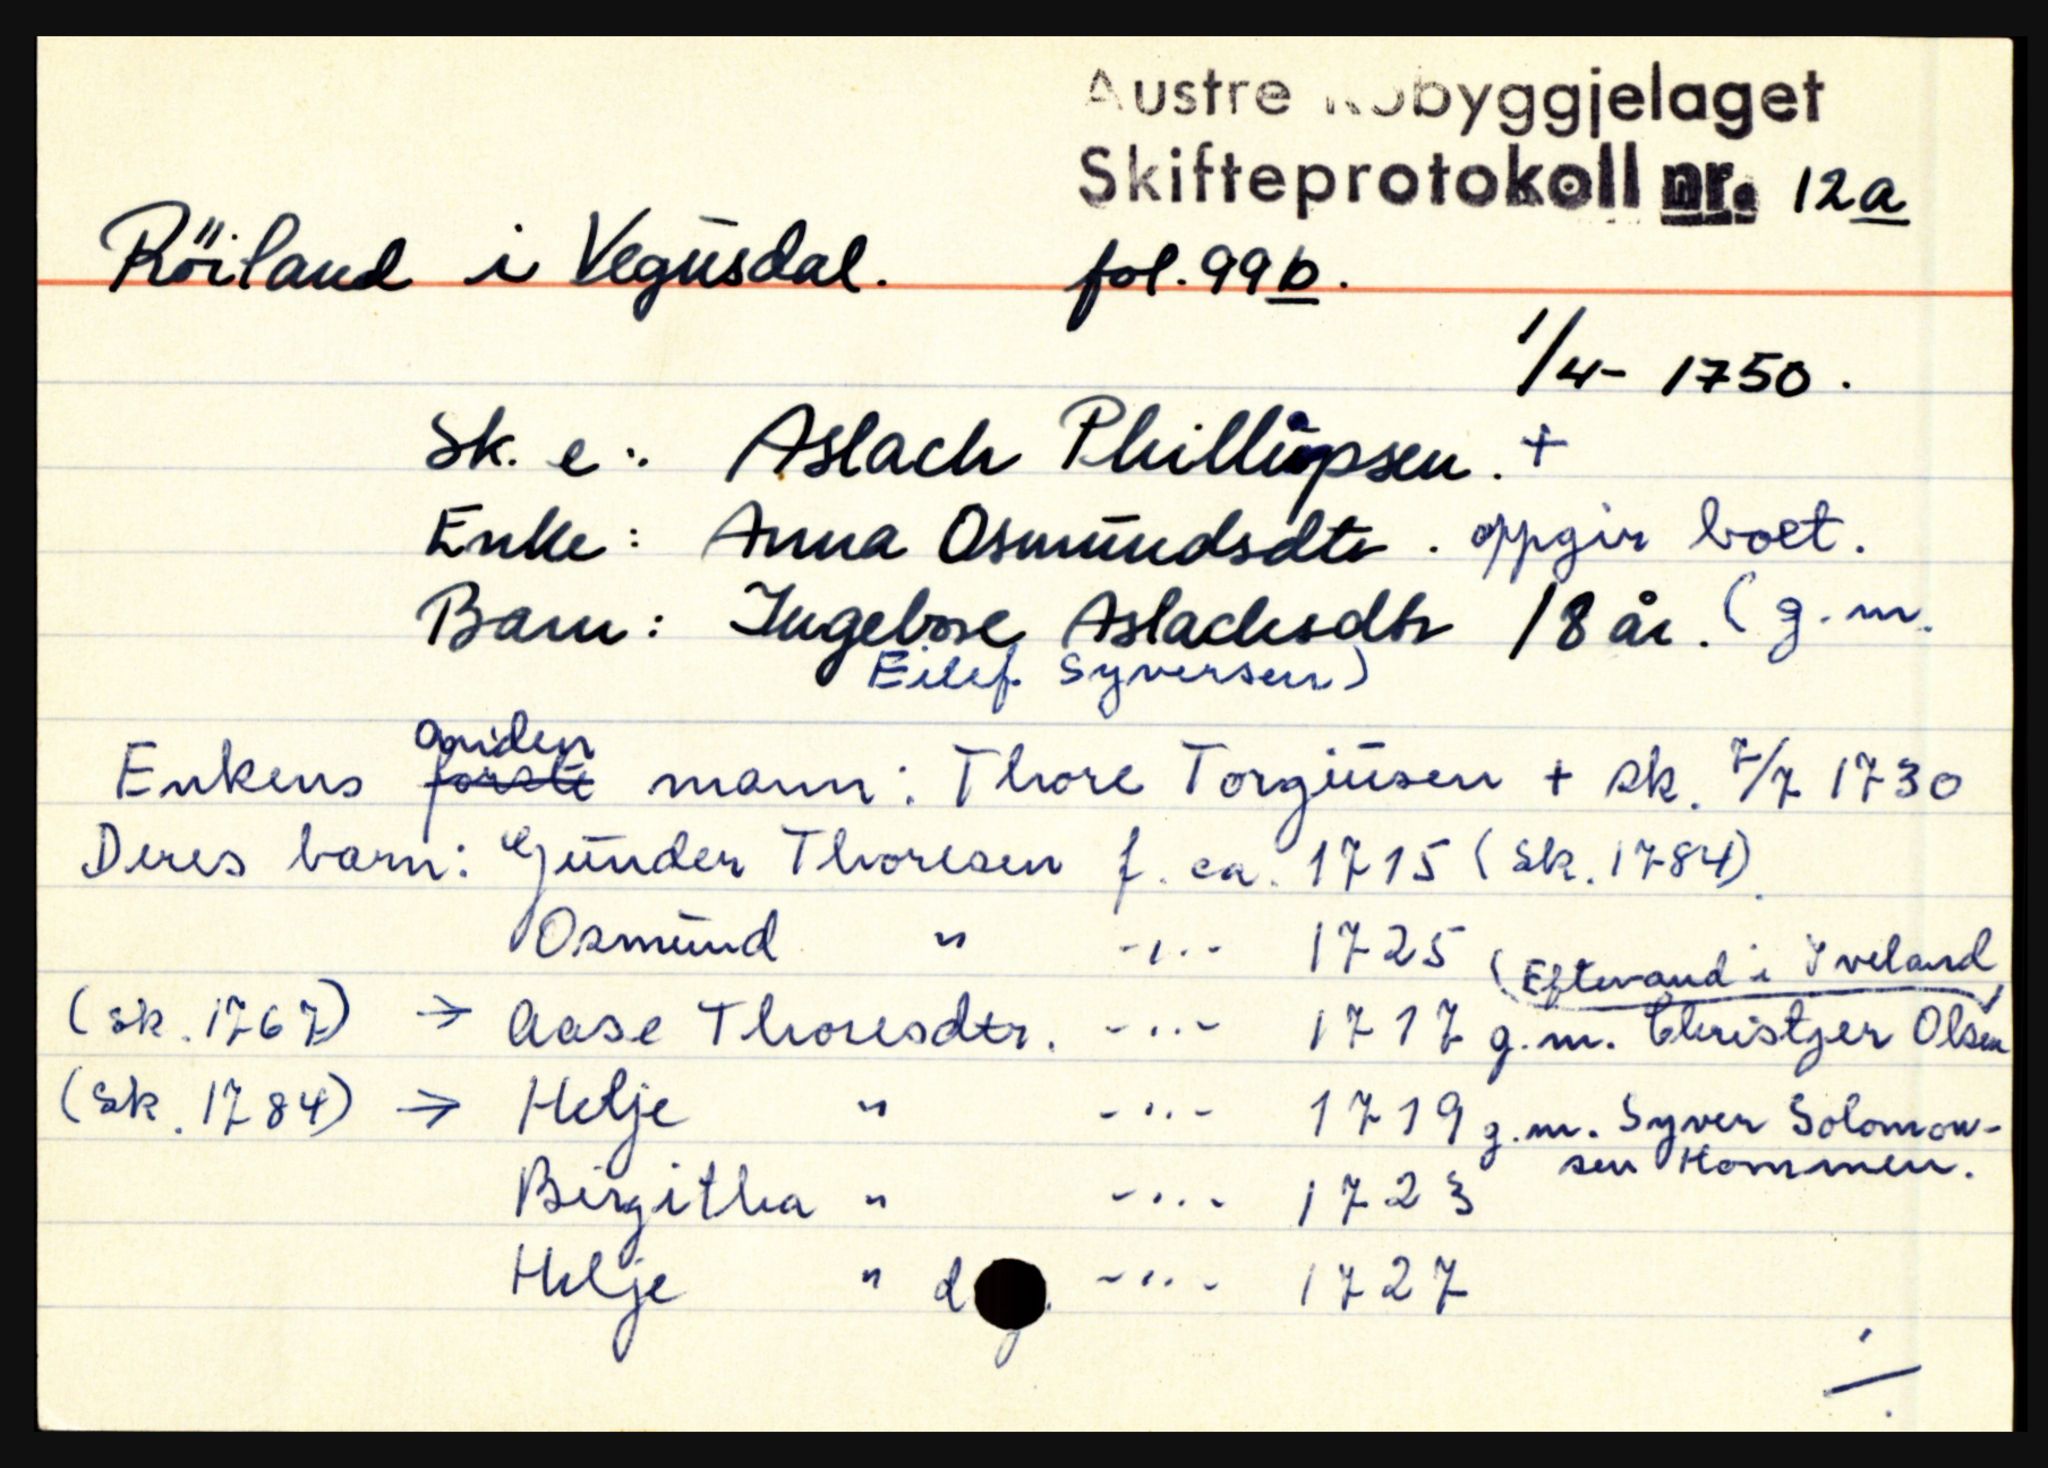 Austre Robyggjelaget
Skifteprotokoll nr. 12a
Röiland i Vegusdal. fol. 99b.
1/4- 1750.
Sk. e.: Aslach Phillupsen. +
Enke: Anna Osmundsdtr. oppgir boet.
Barn: Ingebore Aslachsdtr 18 år. (g.m.
Eilef Syversen)
anden
Enkens første mann: Thore Torgiusen + sk. 7/7 1730
Deres barn: Gunder Thoresen f. ca. 1715 (Sk. 1784)
Osmund " -"- 1725
(Eftevand i Iveland)
(sk. 1767) → Aase Thoresdtr. -"- 1717 g.m. Christjer Olsen
(Sk. 1784) → Helje " -"- 1719 g.m. Syver Solomon-
sen Hommen.
Birgitha " -"- 1723
Helje " d -"- 1727